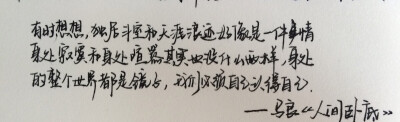 有时想想，独居斗室和天涯浪迹好像是一件事情
身处寂寞和身处喧嚣其实也没什么两样，身处
的整个世界都是镜子，我们必须自己认得自己．
——马良《人间卧底》